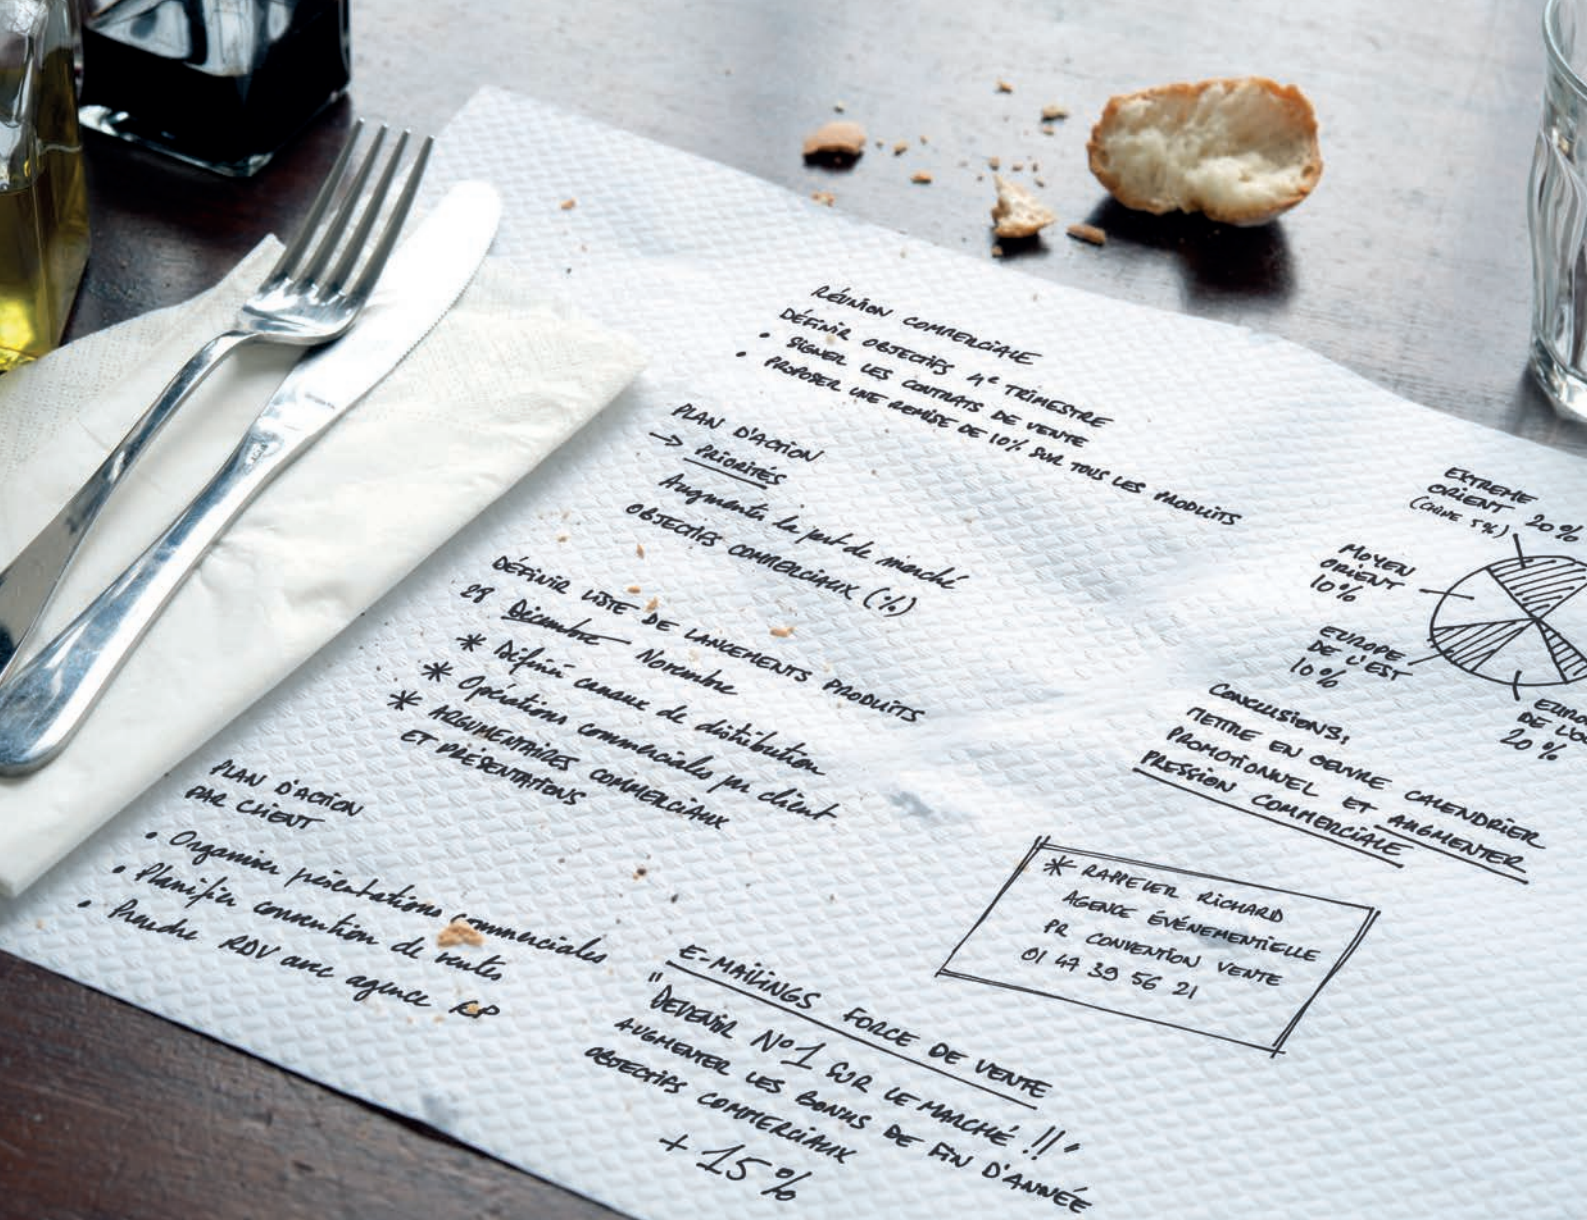 RÉUNION COMMERCIALE
DÉFINIR OBJECTIFS 4e TRIMESTRE
• SIGNER LES CONTRATS DE VENTE
• PROPOSER UNE REMISE DE 10% SUR TOUS LES PRODUITS
PLAN D'ACTION
→ PRIORITÉS
Augmenter la part de marché
OBJECTIFS COMMERCIAUX (%)
DÉFINIR LISTE DE LANCEMENTS PRODUITS
28 Décembre - Novembre
* Définir canaux de distribution
* Opérations commerciales par client
* ARGUMENTAIRES COMMERCIAUX
ET PRÉSENTATIONS
PLAN D'ACTION
PAR CLIENT
• Organiser présentations commerciales
• Planifier convention de ventes
• Prendre RDV avec agence RP
EXTREME
ORIENT 20%
(CHINE 5%)
MOYEN
ORIENT
10%
EUROPE
DE L'EST
10%
EURO
DE L'OU
20%
CONCLUSIONS:
METTRE EN OEUVRE CALENDRIER
PROMOTIONNEL ET AUGMENTER
PRESSION COMMERCIALE
* RAPPELER RICHARD
AGENCE ÉVÉNEMENTIELLE
PR CONVENTION VENTE
01 47 39 56 21
E-MAILINGS FORCE DE VENTE
"DEVENIR N°1 SUR LE MARCHÉ !!"
AUGMENTER LES BONUS DE FIN D'ANNÉE
OBJECTIFS COMMERCIAUX
+ 15%